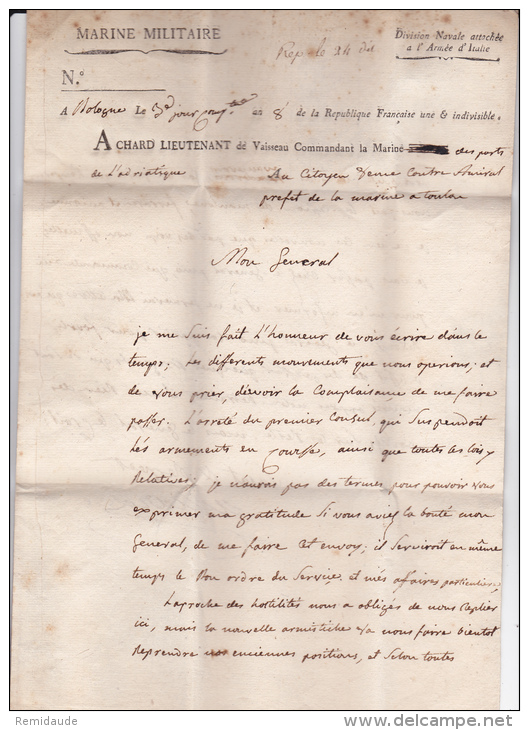 MARINE MILITAIRE
Division Navale attachée
a l'Armée d'Italie
Rep le 24 dit
N.°
A Bologne Le 3e jour comp.re an 8e de la Republique Française une & indivisible.
ACHARD LIEUTENANT de Vaisseau Commandant la Marine des ports
de L'adriatique
Au Citoyen Vence Contre Amiral
prefet de la marine a toulon
Mon General
je me suis fait L'honneur de vous écrire dans le
temps; Les differents mouvements que nous operions; et
de vous prier, d'avoir la Complaisance de me faire
passer. L'arreté du premier Consul, qui Suspendoit
Lés armements en Courssse, ainsi que toutes les lois y
Relatives; je n'aurois pas des termes, pour pouvoir vous
exprimer ma gratitude Si vous aviez la bonté mon
General, de me faire Cet envoy; il Serviroit en même
temps le Bon ordre du Service, et més affaires particulieres
Laproche des hostilités nous a obligés de nous replier
ici, mais la nouvelle armistiche va nous faire bientot
Reprendre nos enciennes positions, et Selon toutes
Remidaude
www.delcampe.net